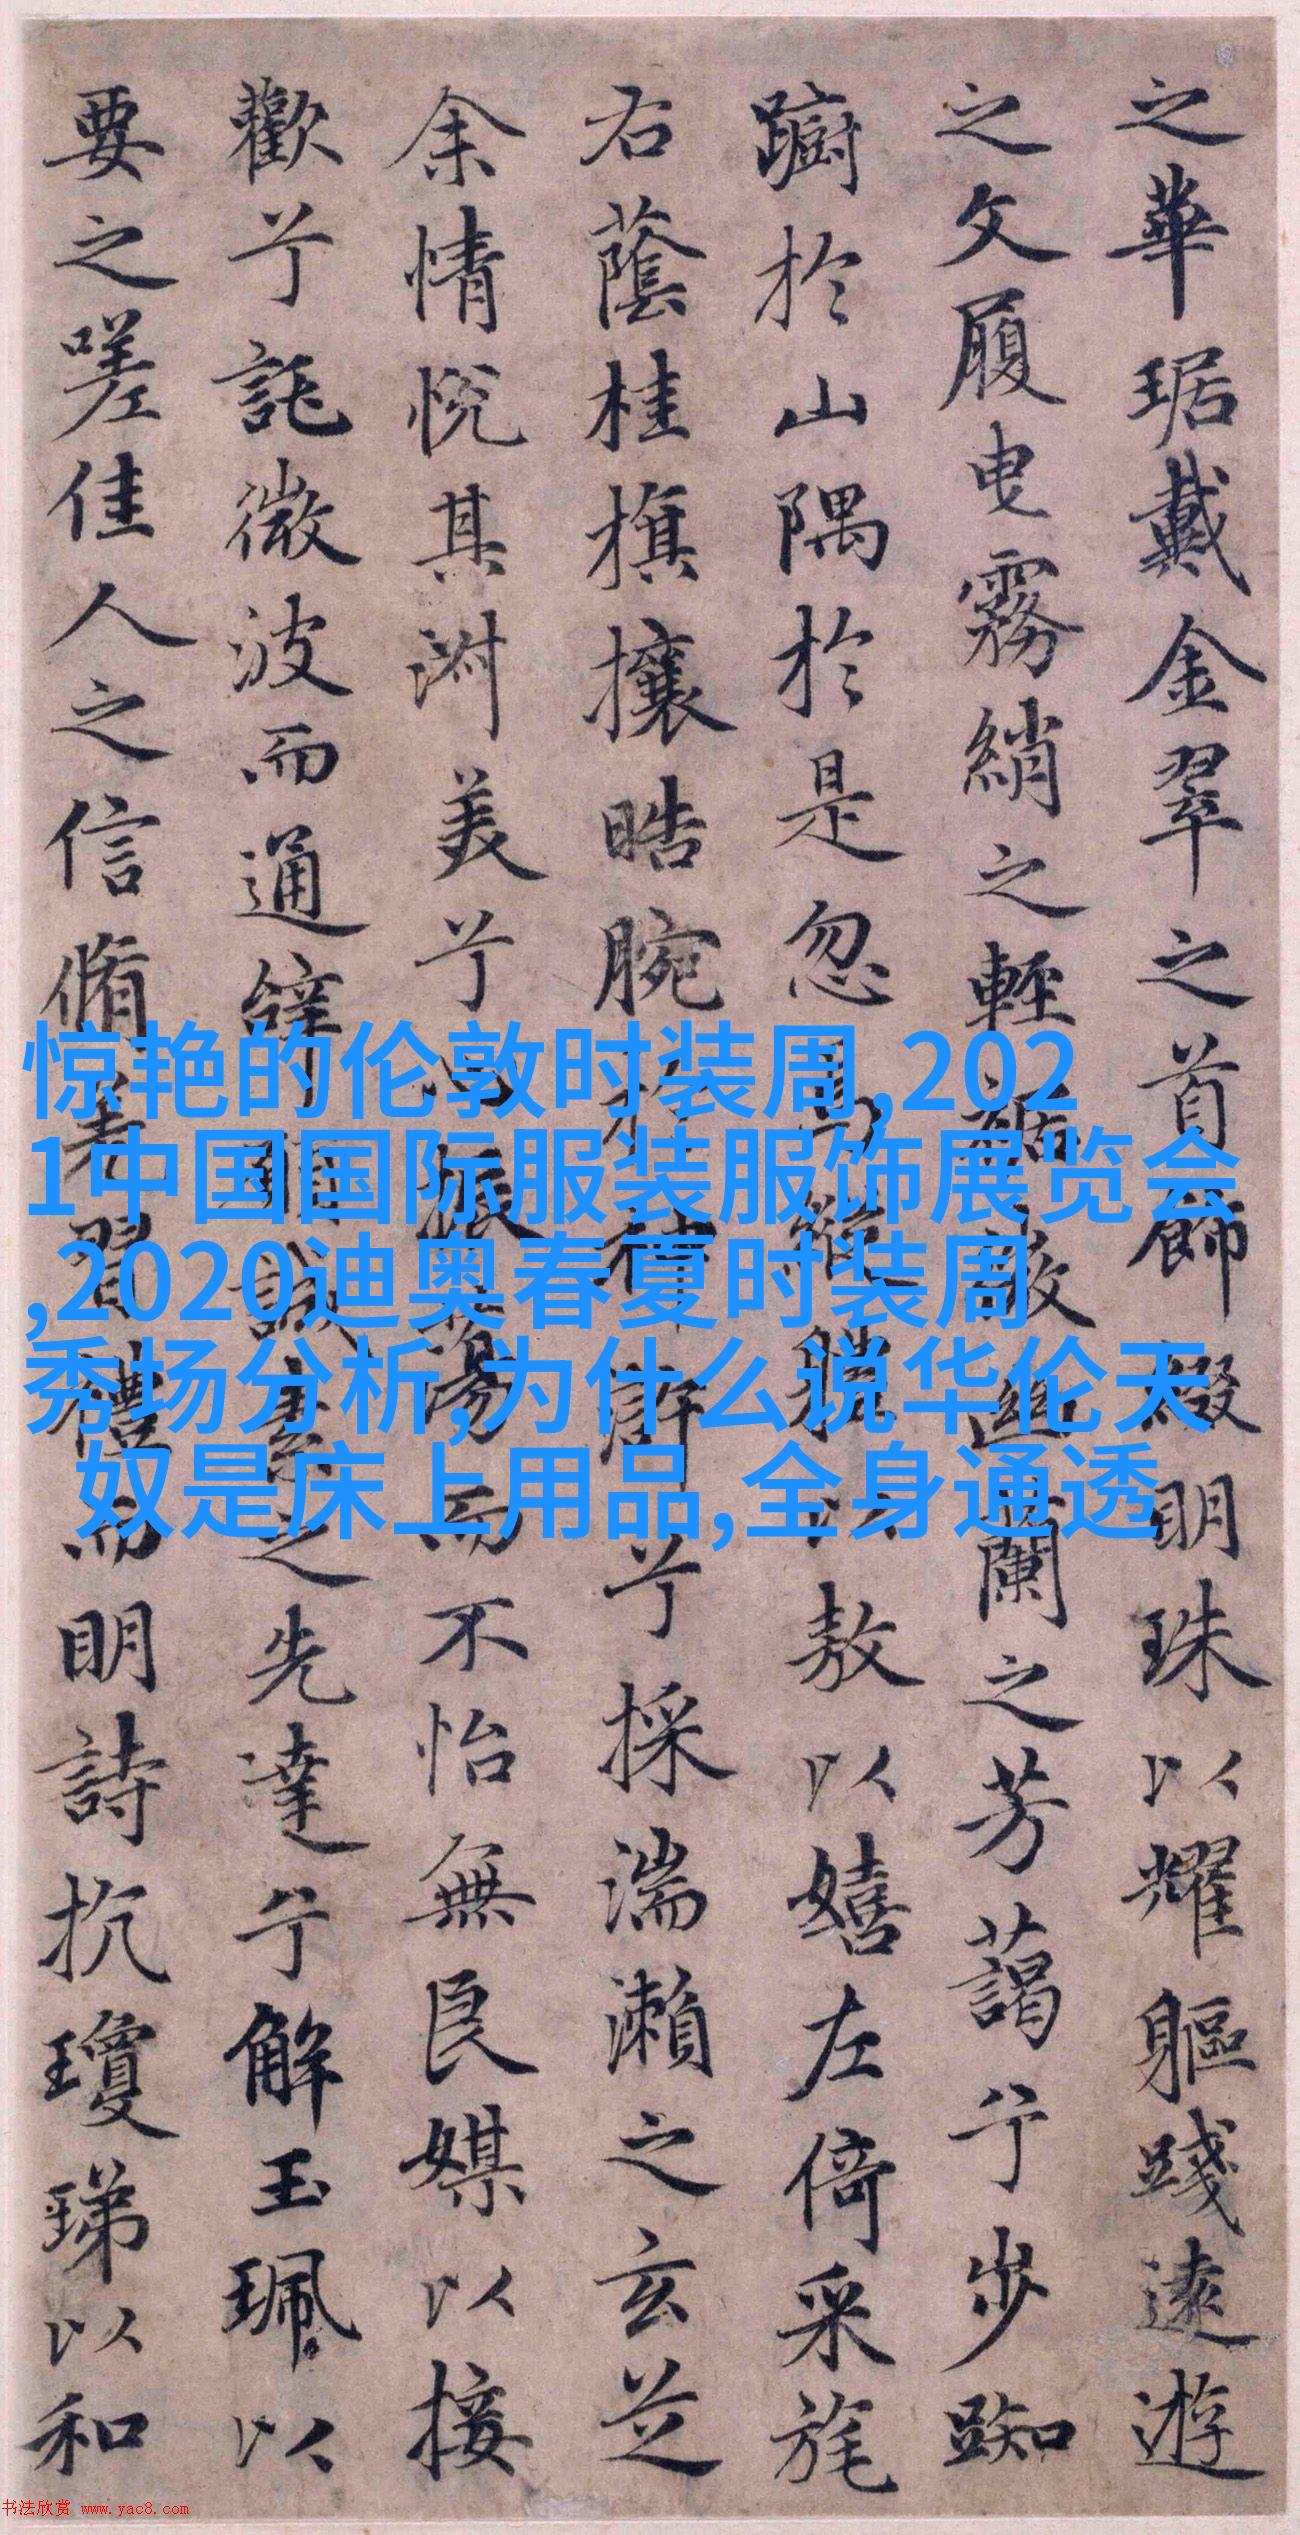 之華琚戴金翠之首飾綴明珠以耀軀踐遠遊
之文履曳霧綃之輕裾微幽蘭之芳藹兮步踟
蹰於山隅於是忽焉縱體以敖以嬉左倚采旄
右蔭桂旗攘皓腕於神滸兮採湍瀨之玄芝
余情悦其淑美兮心振蕩而不怡無良媒以接
歡兮託微波而通辭願誠素之先達兮解玉珮以
要之嗟佳人之信脩羌習禮而明詩抗瓊珶以和
惊艳的伦敦时装周,202
1中国国际服装服饰展览会
,2020迪奥春夏时装周
秀场分析,为什么说华伦天
奴是床上用品,全身通透
书法欣赏 www.yac8.com